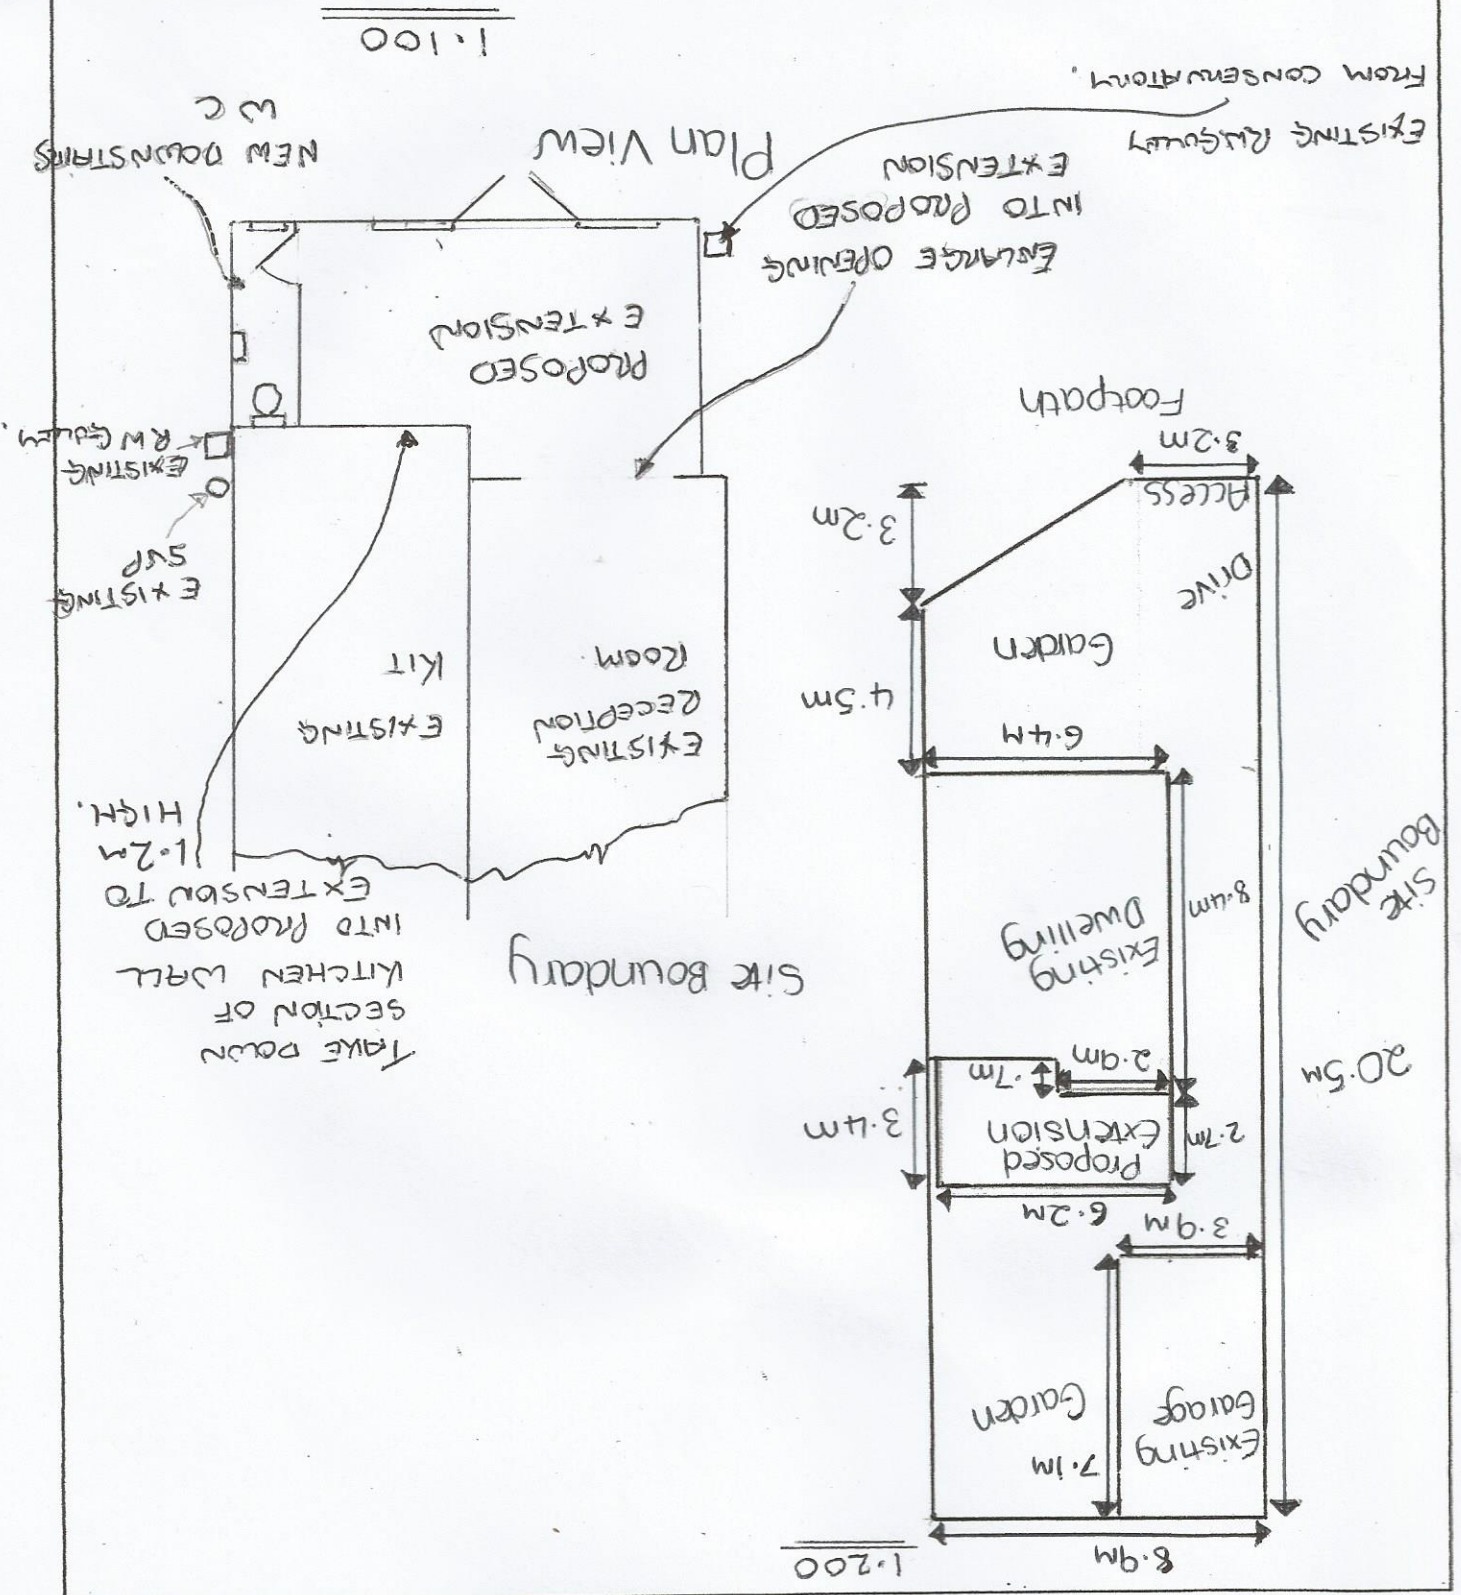 1·200
8·9M
Existing
Garage
7·1M
Garden
3·9M
6·2M
2·7m
Proposed
Extension
3·4m
2·9m
·7m
20·5M
Site
Boundary
8·4m
Existing
Dwelling
6·4M
4·5m
Garden
Drive
3·2m
Access
3·2m
Footpath
Site Boundary
TAKE DOWN
SECTION OF
KITCHEN WALL
INTO PROPOSED
EXTENSION TO
1·2m
HIGH.
EXISTING
RECEPTION
ROOM
EXISTING
KIT
EXISTING
SVP
EXISTING
RW GULLEY.
PROPOSED
EXTENSION
ENLARGE OPENING
INTO PROPOSED
EXTENSION
EXISTING RW GULLEY
FROM CONSERVATORY.
NEW DOWNSTAIRS
WC
Plan View
1·100